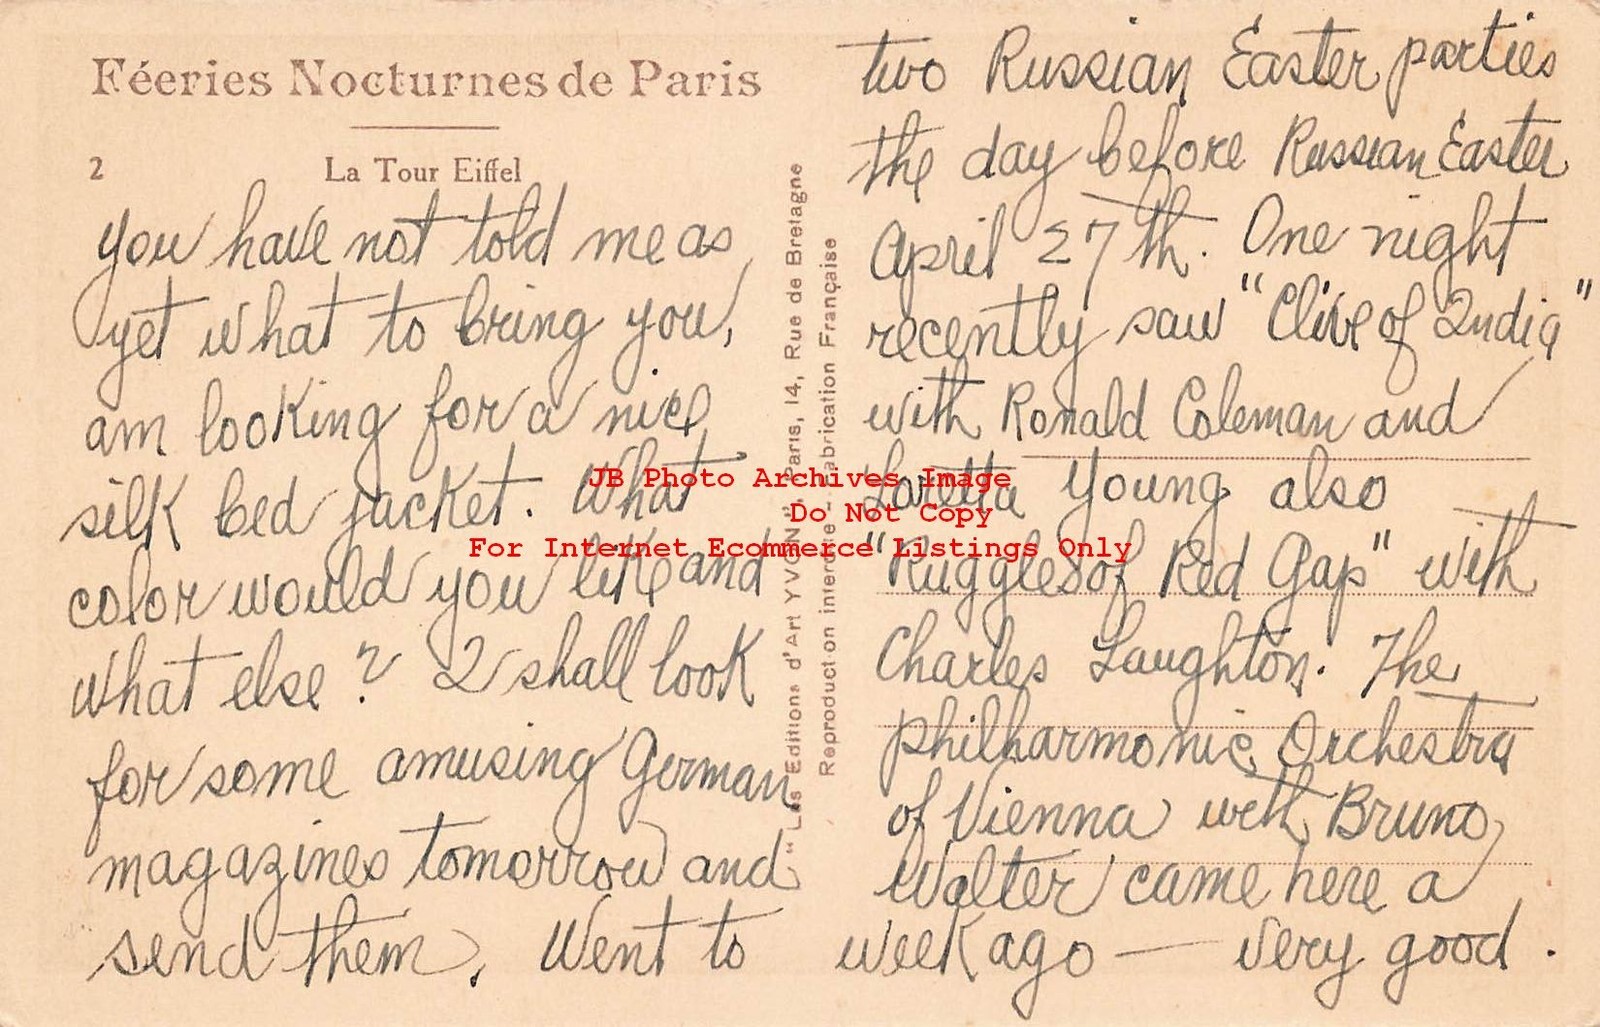 Féeries Nocturnes de Paris
2 La Tour Eiffel
you have not told me as
yet what to bring you,
am looking for a nice
silk bed jacket. What
color would you like and
what else? I shall look
for some amusing German
magazines tomorrow and
send them. Went to
"Les Editions d'Art YVON", Paris, 14, Rue de Bretagne
Reproduction interdite - Fabrication Française
two Russian Easter parties
the day before Russian Easter
April 27th. One night
recently saw "Clive of India"
with Ronald Coleman and
Loretta Young also
"Ruggles of Red Gap" with
Charles Laughton. The
Philharmonic Orchestra
of Vienna with Bruno
Walter came here a
week ago — very good.
JB Photo Archives Image
Do Not Copy
For Internet Ecommerce Listings Only